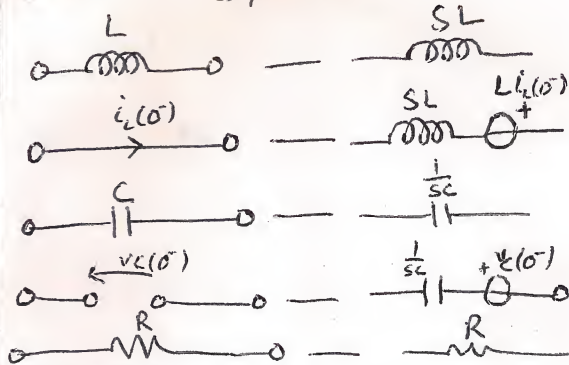 L SL
i_L(0⁻) SL L i_L(0⁻) +
C 1/SC
vc(0⁻) 1/SC + vc(0⁻)
R R